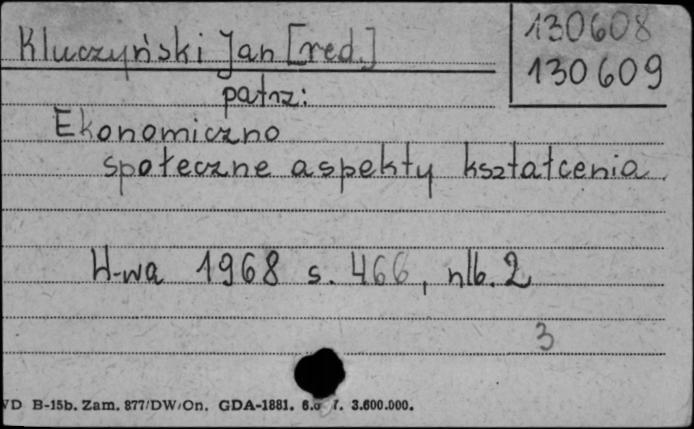 Kluczyński Jan [red.]
130608
130609
patrz:
Ekonomiczno
społeczne aspekty kształcenia
W-wa 1968 s. 466, nlb. 2
3
B-15b. Zam. 877/DW/On. GDA-1881. 3.600.000.